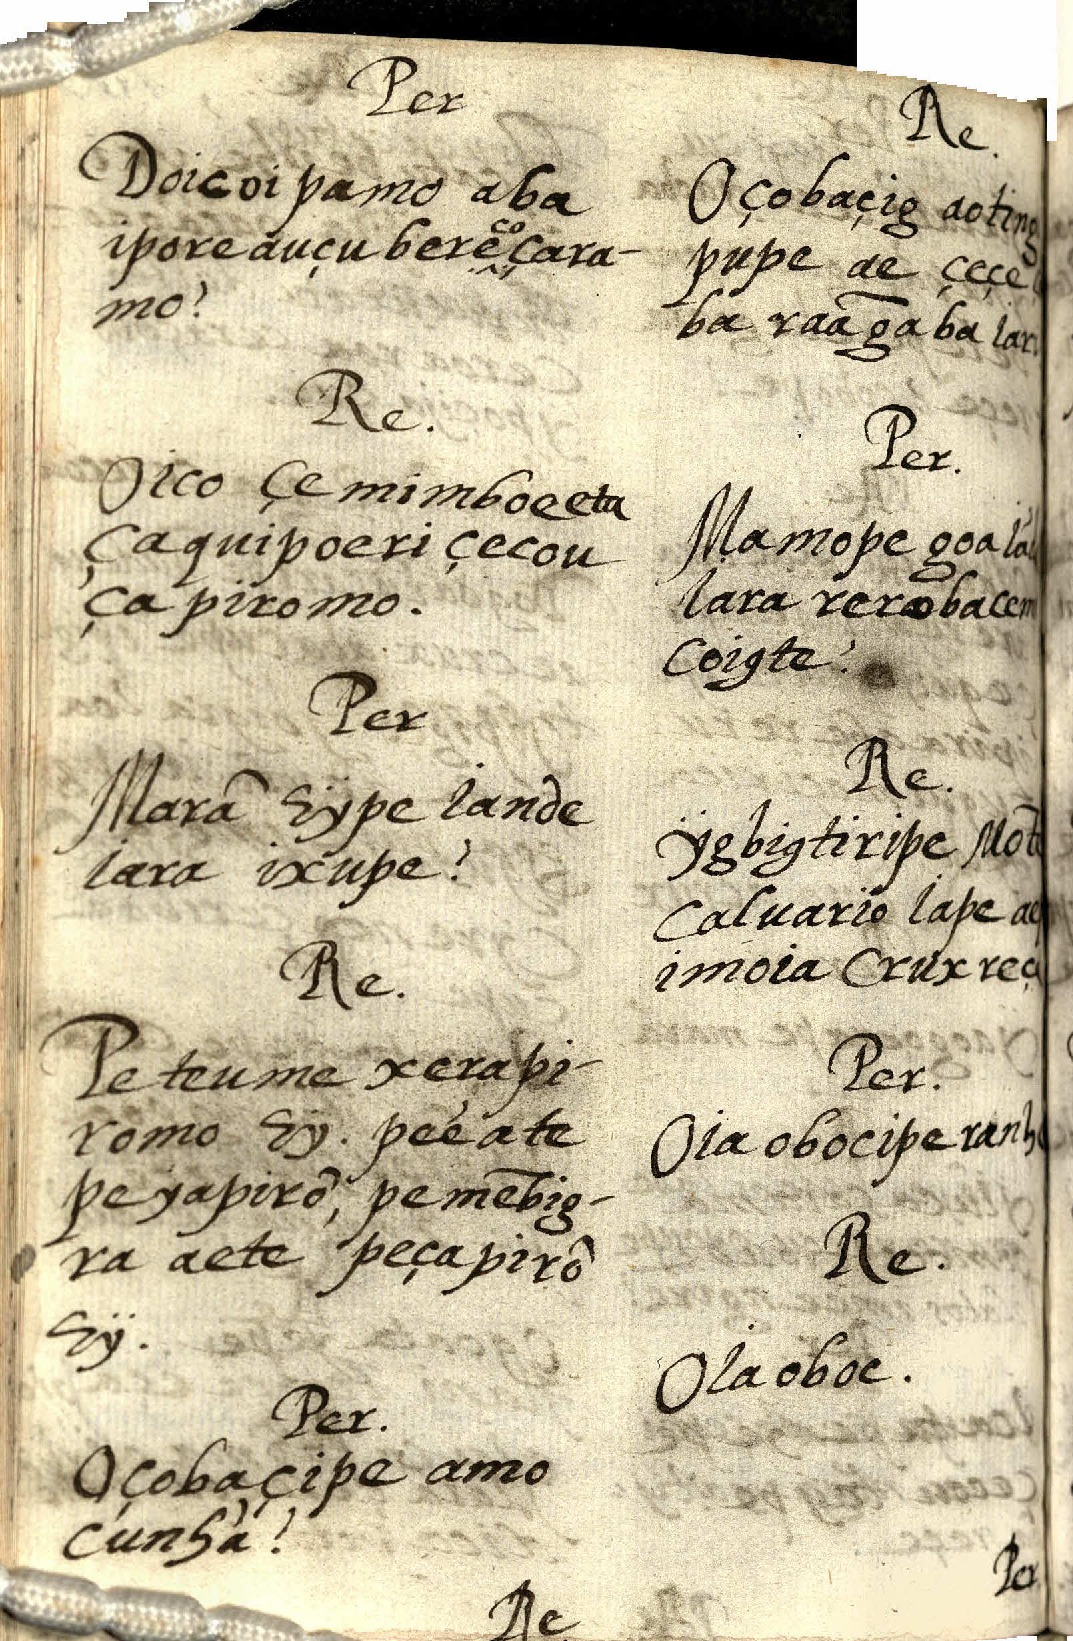 Per
Doicoi pamo aba
ipore auçu berẽ çara-
co
mo?
Re.
Oico Çemimboeeta
Çaquipoeri çecou
ça piromo.
Per
Marã hỹpe iande
iara ixupe?
Re.
Peteume xerapi-
romo hỹ. peẽ ate
peyapirõ, pemẽbig-
ra aete peçapirõ
hỹ.
Per.
Oçobaçipe amo
cunhã?
Re
Re.
Oçobaçig aoting
pupe ae
ba raãgaba
Per.
Mamope
iara rerobacem
coigte?
Re.
Ygbigtiripe
Caluario iape
imoia Crux
Per.
Oia obocipe
Re.
Oia oboc.
Per